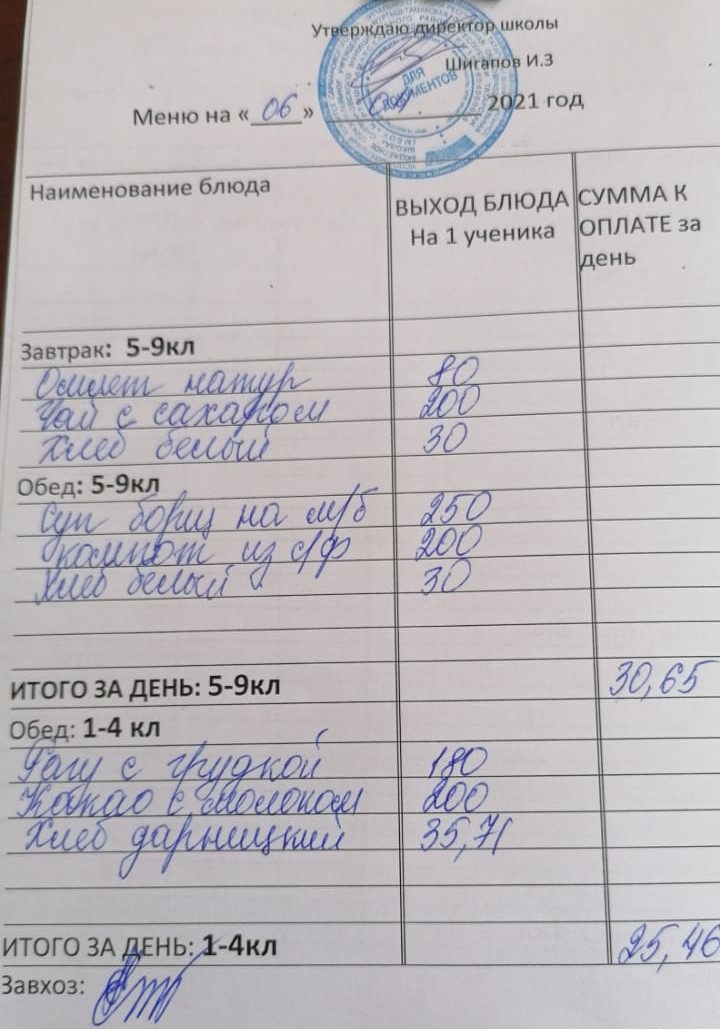 Утверждаю директор школы
Шигапов И.З
Меню на «06» 2021 год
ДЛЯ ДОКУМЕНТОВ
Наименование блюда ВЫХОД БЛЮДА На 1 ученика СУММА К ОПЛАТЕ за день
Завтрак: 5-9кл
Омлет натур 80
Чай с сахаром 200
Хлеб белый 30
Обед: 5-9кл
Суп борщ на м/б 250
компот из с/ф 200
Хлеб белый 30
ИТОГО ЗА ДЕНЬ: 5-9кл 30,65
Обед: 1-4 кл
Рагу с грудкой 180
Какао с молоком 200
Хлеб дарницкий 35,71
ИТОГО ЗА ДЕНЬ: 1-4кл 25,46
Завхоз: